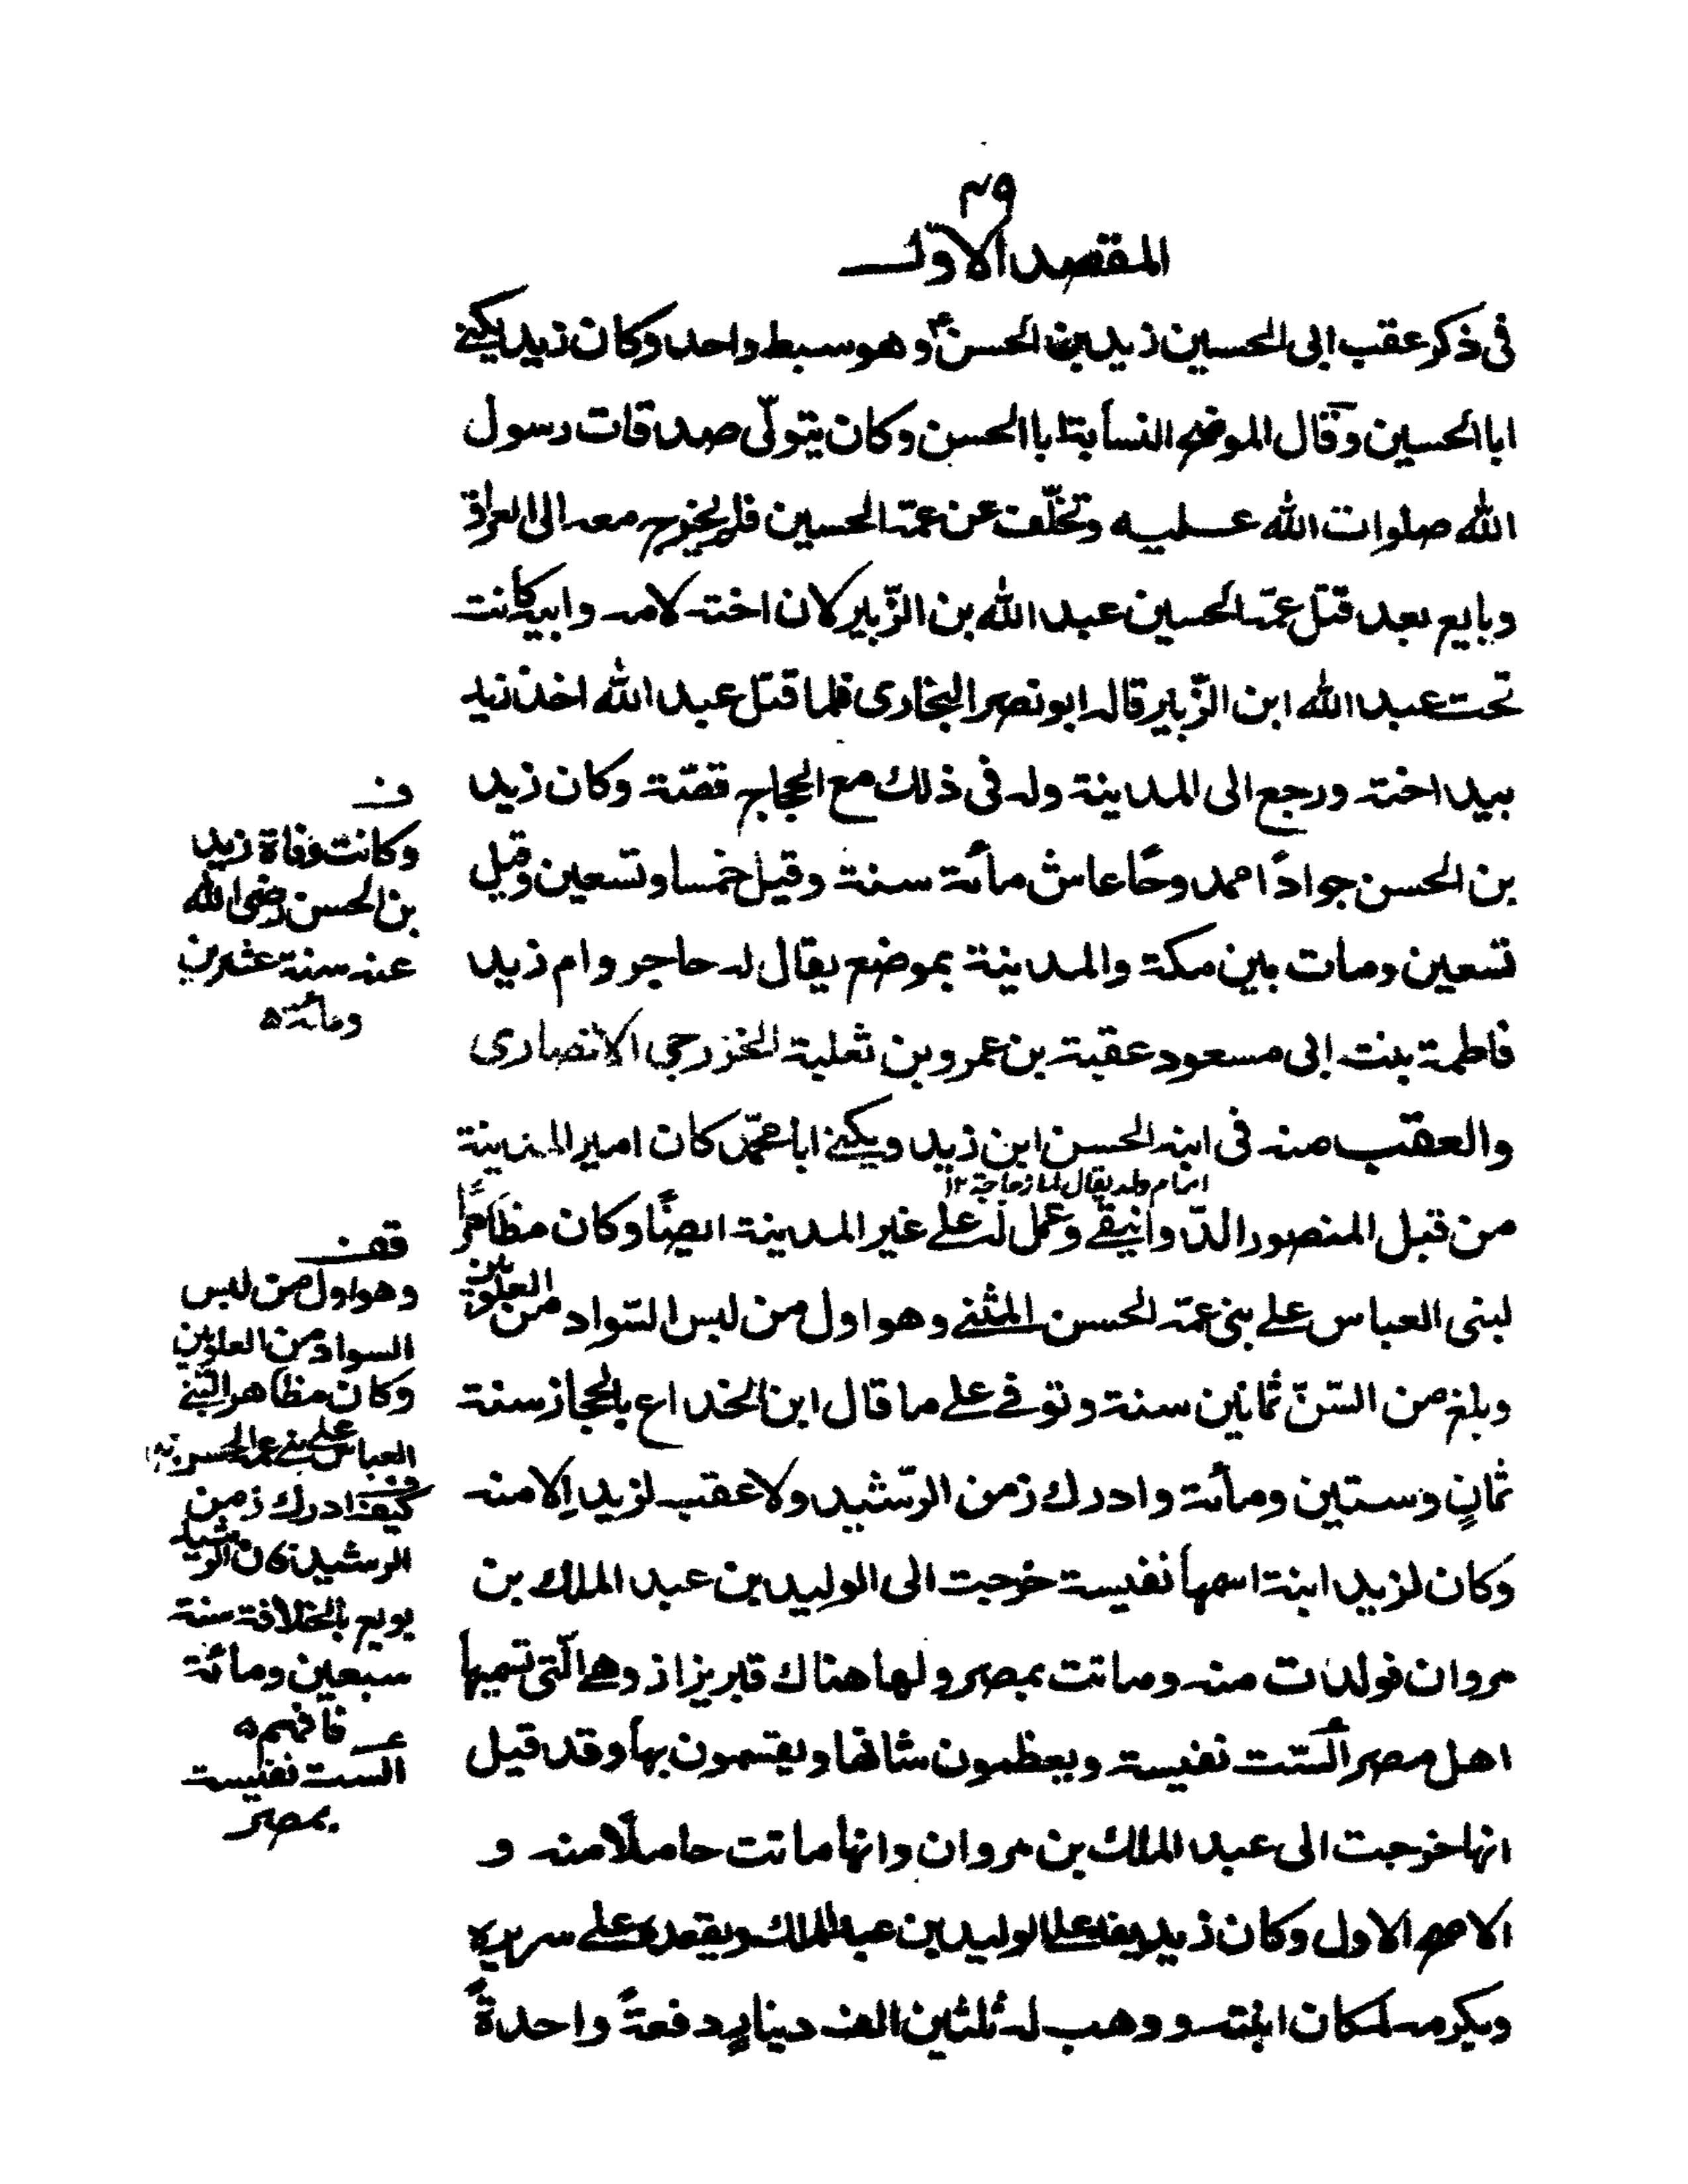 ٤٩
المقصد الاول
فى ذكر عقب ابى الحسين زيد بن الحسن ع وهو سبط واحد وكان زيد يكنى
ابا الحسين وقال الموضح النسابة ابا الحسن وكان يتولّى صدقات رسول
الله صلوات الله عليه وتخلّف عن عمه الحسين فلم يخرج معه الى العراق
وبايع بعد قتل عمّه الحسين عبد الله بن الزّبير لان اخته لامه وابيه كانت
تحت عبد الله ابن الزّبير قاله ابو نصر البخارى فلما قتل عبد الله اخذ زيد
بيد اخته ورجع الى المدينة وله فى ذلك مع الحجاج قصّة وكان زيد
بن الحسن جوادًا ممدوحًا عاش مائة سنة وقيل خمسا وتسعين وقيل
تسعين ومات بين مكة والمدينة بموضع يقال له حاجر وام زيد
فاطمة بنت ابى مسعود عقبة بن عمرو بن ثعلبة الخزرجي الانصارى
والعقب منه فى ابنه الحسن ابن زيد ويكنى ابا محمّد كان امير المدينة
من قبل المنصور الدّوانيقى وعمل له على غير المدينة ايضًا وكان مظاهرًا
لبنى العباس على بنى عمّه الحسن المثنى وهو اول من لبس السّواد من العلويين
وبلغ من السّنّ ثمانين سنة وتوفى على ما قال ابن الخداع بالحجاز سنة
ثمانٍ وستين ومائة وادرك زمن الرّشيد ولا عقب لزيد الا منه
وكان لزيد ابنة اسمها نفيسة خرجت الى الوليد بن عبد الملك بن
مروان فولدت منه وماتت بمصر ولها هناك قبر يزار وهى الّتى تسميها
اهل مصر السّت نفيسة ويعظمون شانها ويقسمون بها وقد قيل
انها خرجت الى عبد الملك بن مروان وانها ماتت حاملًا منه و
الاصح الاول وكان زيد يفد على الوليد بن عبد الملك ويقعده على سريره
ويكرمه لمكان ابنته ووهب له ثلثين الف دينارٍ دفعةً واحدةً
ف
وكانت وفاة زيد
بن الحسن رضى الله
عنه سنة عشرين
ومائة
قف
وهو اول من لبس
السواد من العلويين
وكان مظاهرا لبنى
العباس على بنى عمه الحسن
كيف ادرك زمن
الرشيد كان الرشيد
بويع بالخلافة سنة
سبعين ومائة
فافهم
الست نفيسة
بمصر